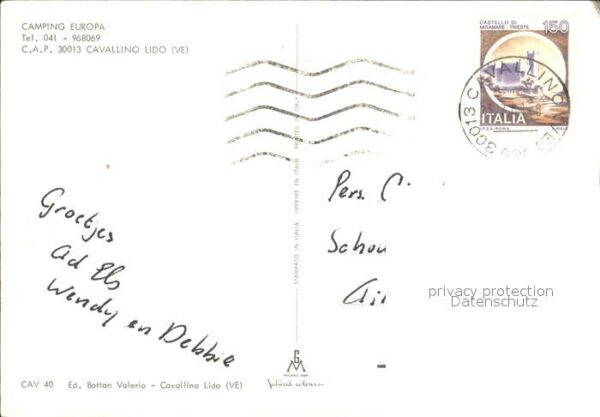 CAMPING EUROPA
Tel. 041 - 968069
C.A.P. 30013 CAVALLINO LIDO (VE)
CASTELLO DI
MIRAMARE - TRIESTE
150
ITALIA
I.P.Z.S. ROMA
30013 CAVALLINO
Groetjes
Ad Els
Wendy en Debbie
Pers.
Schou
privacy protection
Datenschutz
STAMPATO IN ITALIA IMPRIME EN ITALIE PRINTED IN ITALY
GM
CAV 40 Ed. Bottan Valerio - Cavallino Lido (VE)